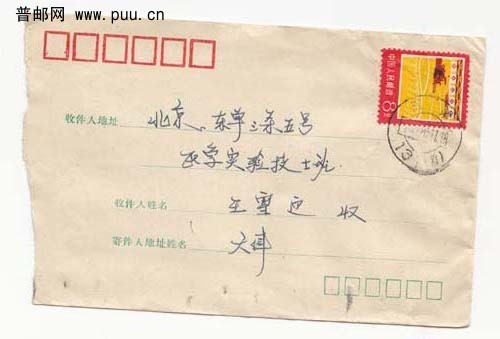 普邮网 www.puu.cn
中国人民邮政
8分
收件人地址 北京、东单三条五号
医学实验技士班
收件人姓名 王 迎 收
寄件人地址姓名 天津